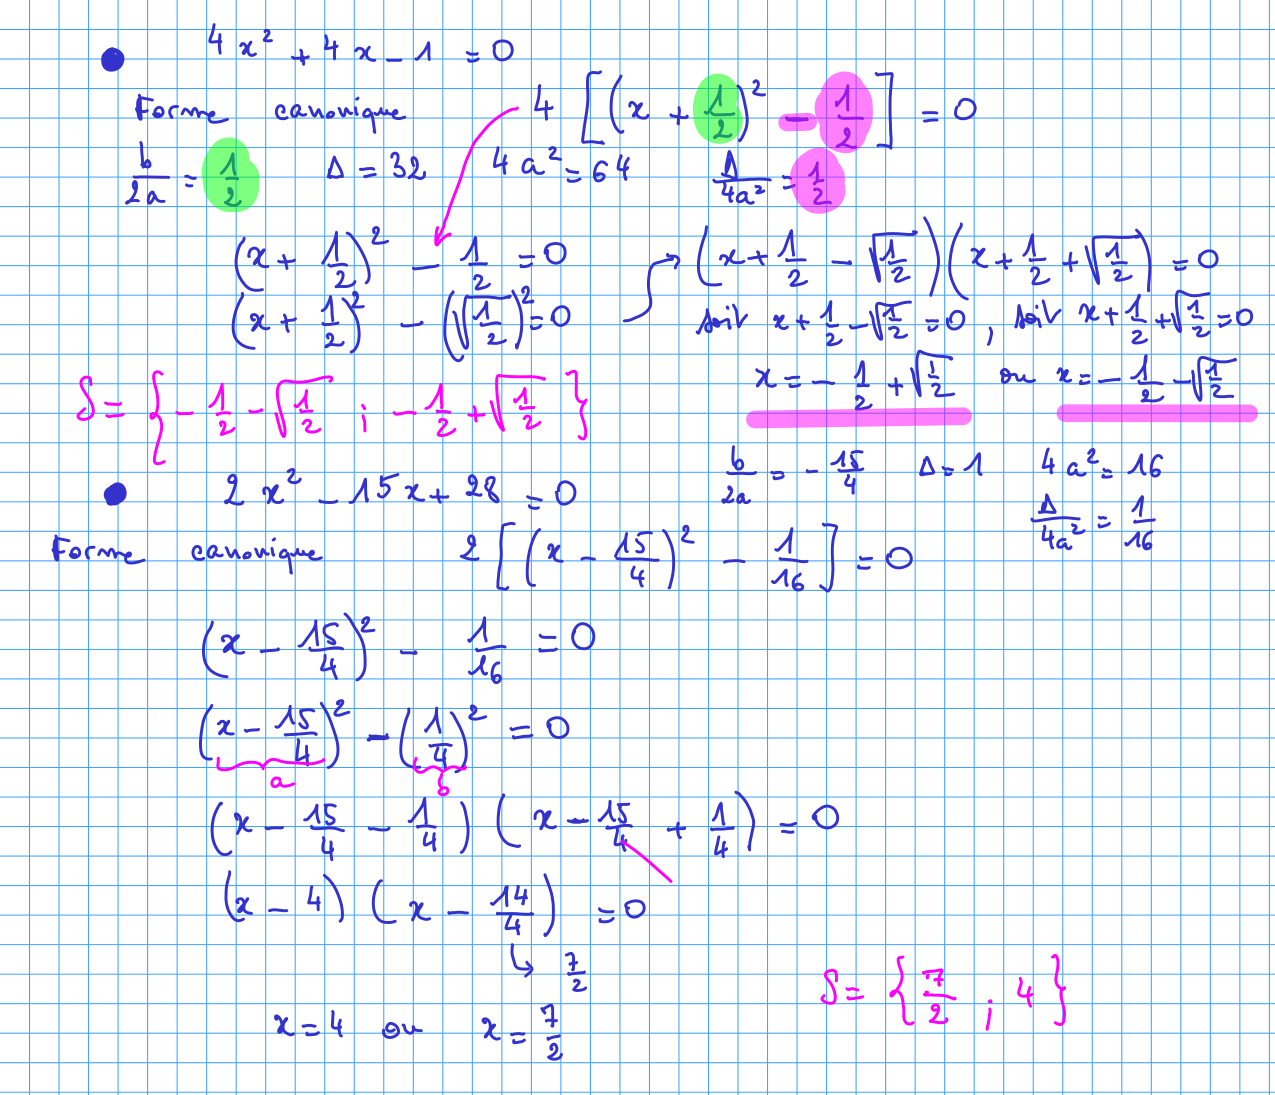 4x² + 4x - 1 = 0
Forme canonique 4[(x + 1/2)² - 1/2] = 0
b/2a = 1/2 Δ = 32 4a² = 64 Δ/4a² = 1/2
(x + 1/2)² - 1/2 = 0
(x + 1/2)² - (√(1/2))² = 0
(x + 1/2 - √(1/2))(x + 1/2 + √(1/2)) = 0
soit x + 1/2 - √(1/2) = 0, soit x + 1/2 + √(1/2) = 0
x = - 1/2 + √(1/2) ou x = - 1/2 - √(1/2)
S = {- 1/2 - √(1/2) ; - 1/2 + √(1/2)}
2x² - 15x + 28 = 0
b/2a = - 15/4 Δ = 1 4a² = 16
Δ/4a² = 1/16
Forme canonique 2[(x - 15/4)² - 1/16] = 0
(x - 15/4)² - 1/16 = 0
(x - 15/4)² - (1/4)² = 0
a b
(x - 15/4 - 1/4)(x - 15/4 + 1/4) = 0
(x - 4)(x - 14/4) = 0
7/2
x = 4 ou x = 7/2
S = {7/2 ; 4}